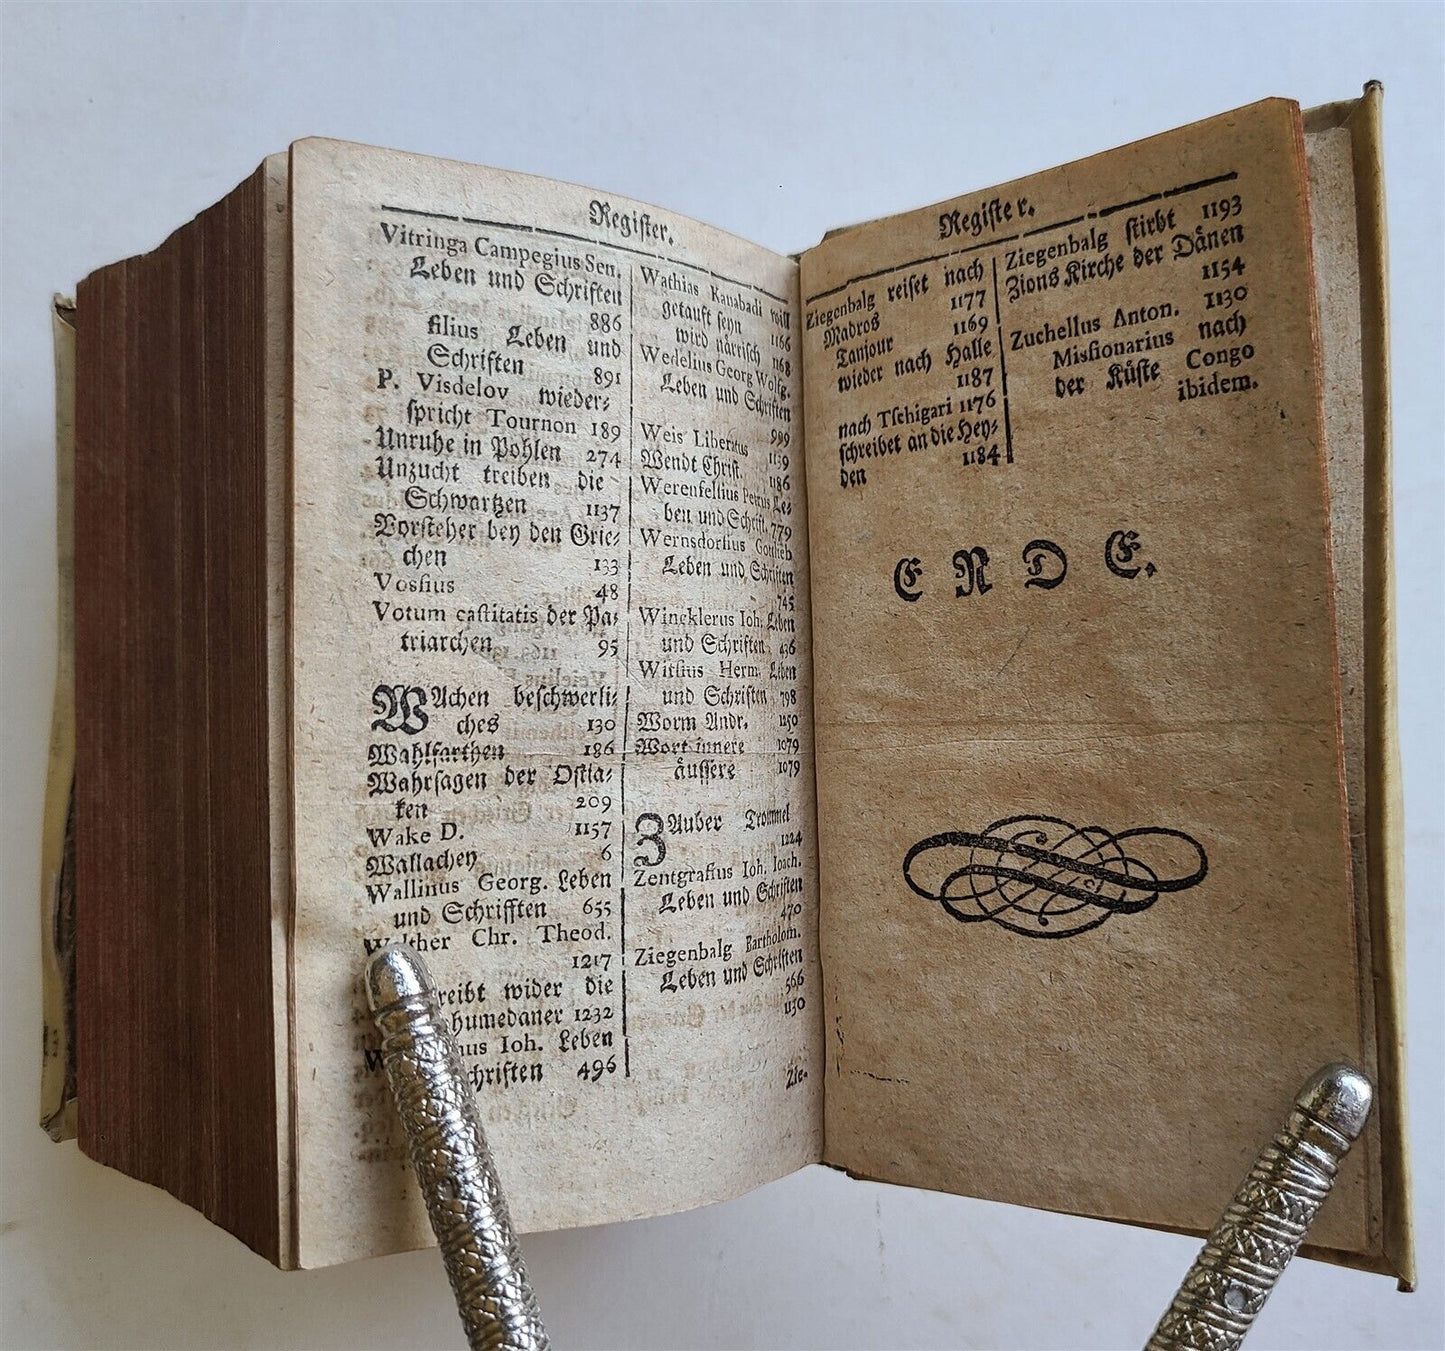 Register.
Vitringa Campegius Sen.
Leben und Schriften
886
filius Leben und
Schriften 891
P. Visdelov wieder-
spricht Tournon 189
Unruhe in Pohlen 274
Unzucht treiben die
Schwartzen 1137
Vorsteher bey den Grie-
chen 133
Vossius 48
Votum castitatis der Pa-
triarchen 95
WAchen beschwerli-
ches 130
Wahlfarthen 186
Wahrsagen der Ostia-
ken 209
Wake D. 1157
Wallachey 6
Wallinus Georg. Leben
und Schrifften 655
Walther Chr. Theod.
1217
reibt wider die
humedaner 1232
nus Ioh. Leben
chriften 496
Wathias Kanabadi will
getauft seyn 1166
wird närrisch 1168
Wedelius Georg Wolfg.
Leben und Schriften
999
Weis Liberitus 1139
Wendt Christ. 1186
Werenfelsius Petrus Le-
ben und Schrift. 779
Wernsdorfius Gottlieb
Leben und Schriften
745
Wincklerus Ioh. Leben
und Schriften 436
Witsius Herm. Leben
und Schriften 798
Worm Andr. 1150
Wort innere 1079
äussere 1079
ZAuber Trommel
1224
Zentgrafius Ioh. Ioach.
Leben und Schriften
470
Ziegenbalg Bartholom.
Leben und Schriften
566
1130
Zie-
Register.
Ziegenbalg reiset nach
Madros 1177
Tanjour 1169
wieder nach Halle
1187
nach Tschigari 1176
schreibet an die Hey-
den 1184
Ziegenbalg stirbt 1193
Zions Kirche der Dänen
1154
Zuchellus Anton. 1130
Missionarius nach
der Küste Congo
ibidem.
ENDE.